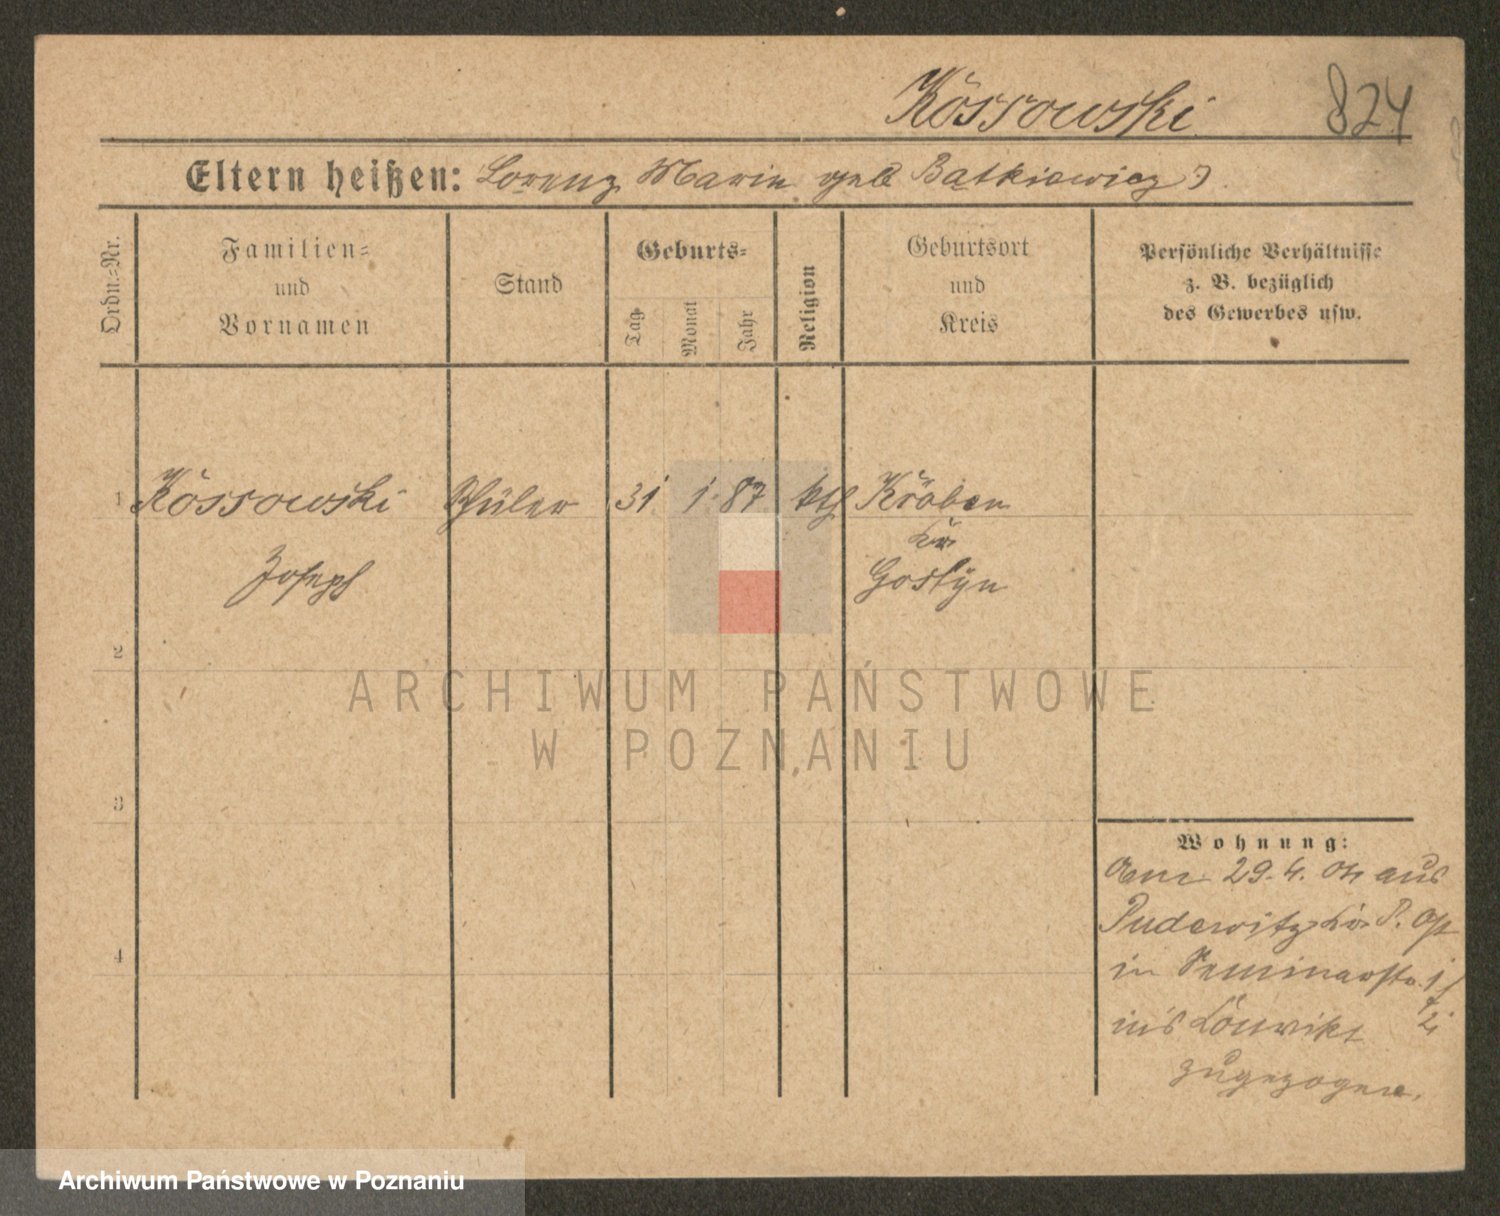 Kossowski 824
Eltern heißen: Lorenz Marie geb Batkiewicz
Ordn.-Nr.
Familien-
und
Vornamen
Stand
Geburts-
Tag
Monat
Jahr
Religion
Geburtsort
und
Kreis
Persönliche Verhältnisse
z. B. bezüglich
des Gewerbes usw.
1 Kossowski Schüler 31 1. 87 kth Kröben
Kr
Joseph Gostyn
2
3
4
ARCHIWUM PAŃSTWOWE
W POZNANIU
Wohnung:
Am 29. 4. 04 aus
Pudewitz Kr P. Ost
in Seminarstr. 1
ins Konvikt 2
zugezogen.
Archiwum Państwowe w Poznaniu